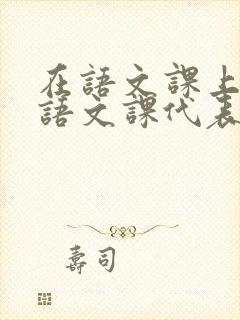 在語文課上
語文課代表
壽司